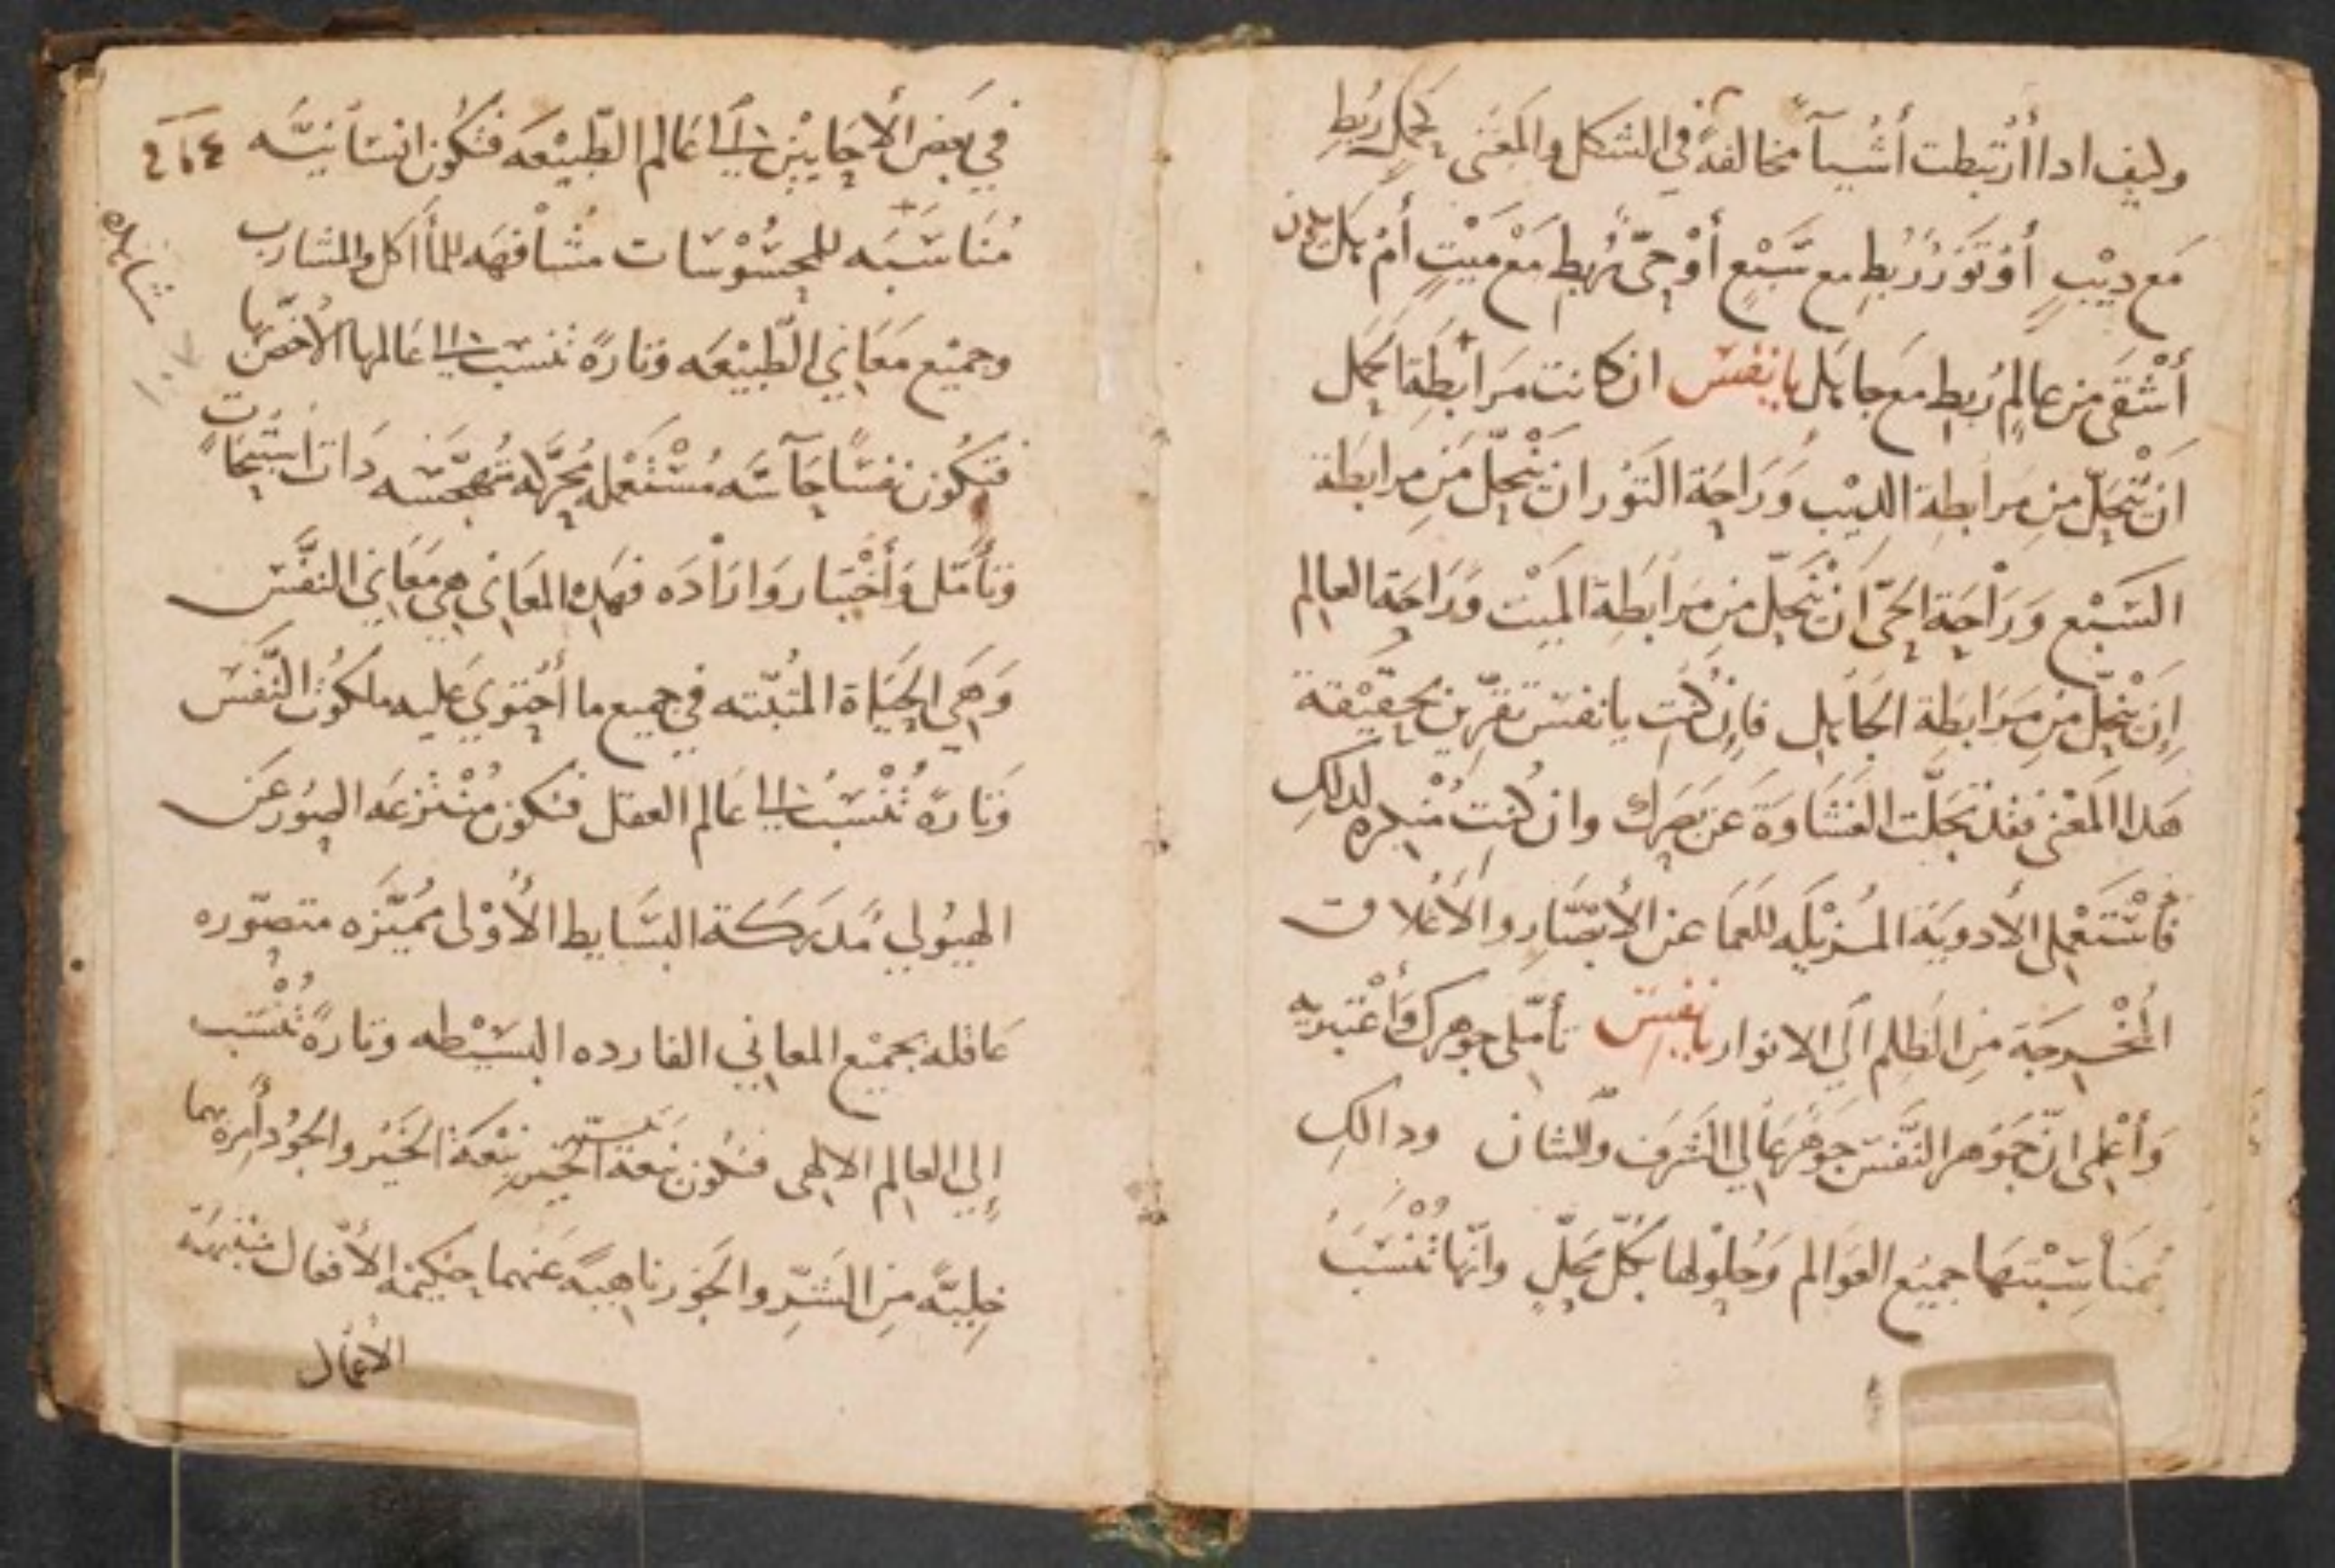 وليف ادا أرتبطت أشيآ مخالفة في الشكل والمعنى كحمل ربط
مع ديب أو تور ربط مع سبع أو حي ربط مع ميت أم بل من
أشقى من عالم ربط مع جاهل يا نفس ان كانت مرابطة الحمل
ان تنحل من مرابطة الديب وراحة التور ان ينحل من مرابطة
السبع وراحة الحي ان ينحل من مرابطة الميت وراحة العالم
إن ينحل من مرابطة الجاهل فإن كنت يا نفس تقرين بحقيقة
هدا المعنى فقد تجلت الغشاوة عن بصرك وان كنت منكره لدلك
فأستعملى الأدوية المزيله للعما عن الأبصار والأعلاق
المخرجة من الظلم الي الانوار يا نفس تأملى جوهرك وأعتبريه
وأعلمى انّ جوهر النفس جوهر عالي الشرف والشان ودالك
بمناسبتها جميع العوالم وحلولها بكل محل وانها تنسب
في بعض الأحايين الى عالم الطبيعه فتكون انسانيه
مناسبه للمحسوسات مشافهه للمأاكل والمشارب
وجميع معاني الطبيعه وتارة تنسب الى عالمها الأخص بها
فتكون نفسا حاسه مستعمله محركه متهجسه دات استحاات
وتأمل وأختيار وارادة فهده المعاني هي معاني النفس
وهي الحياة المتبته في جميع ما أحتوي عليه ملكوت النفس
وتارة تنسب الى عالم العقل فتكون منتزعه الصور عن
الهيولي مدركة البسايط الأولى مميزه متصوره
عاقله بجميع المعاني الفارده البسيطه وتارة تنسب
إلي العالم الالهى فتكون نبعة الخير نبعة الخير والجود أمرة بهما
خليه من الشر والجور ناهيه عنهما حكيمة الأفعال متقنة
الأعمال